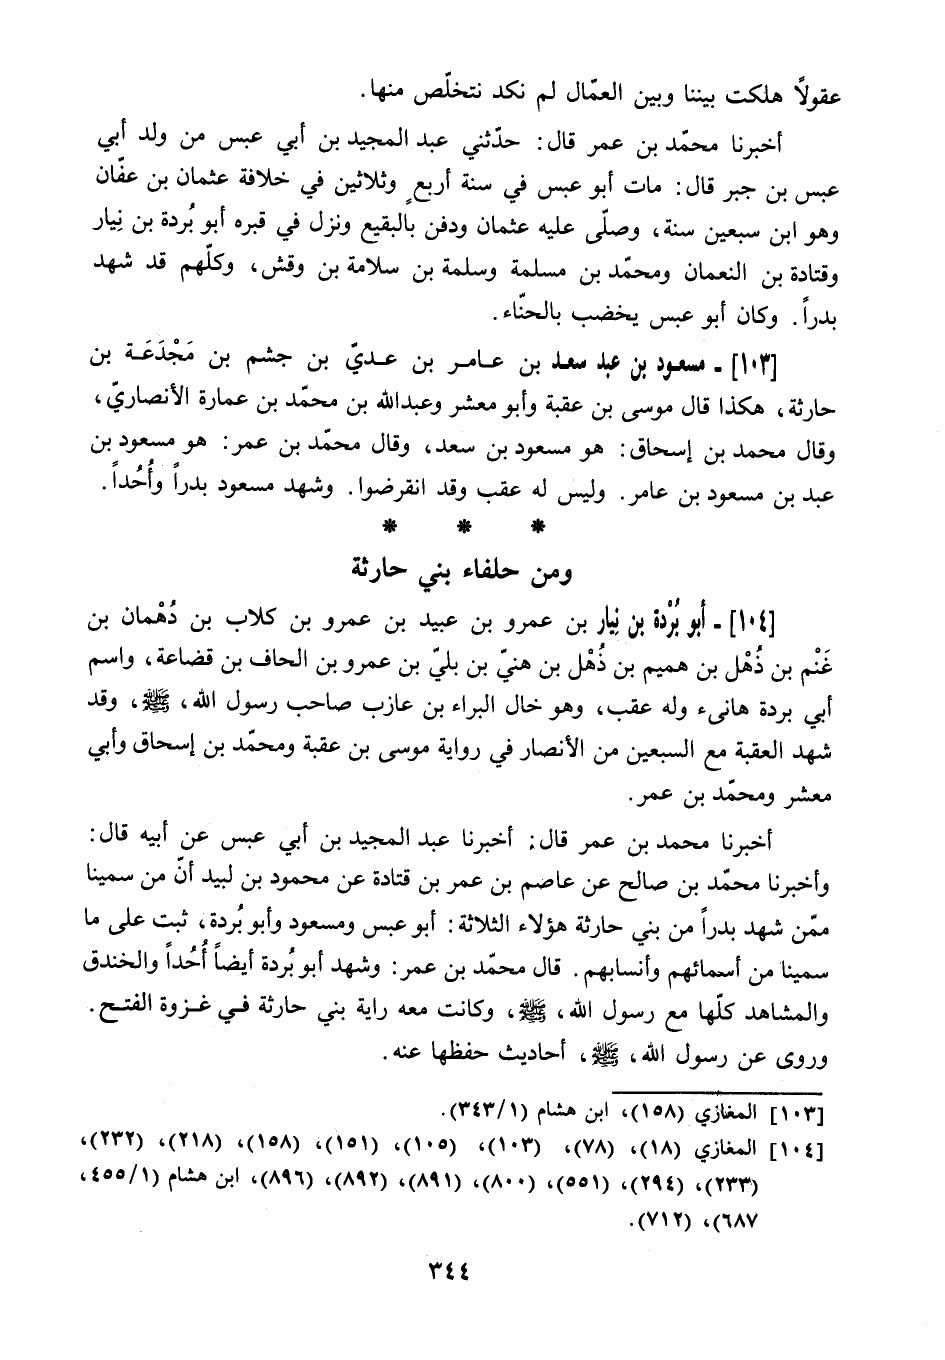 عقولاً هلكت بيننا وبين العمّال لم نكد نتخلّص منها.
أخبرنا محمّد بن عمر قال: حدّثني عبد المجيد بن أبي عبس من ولد أبي
عبس بن جبر قال: مات أبو عبس في سنة أربع وثلاثين في خلافة عثمان بن عفّان
وهو ابن سبعين سنة، وصلّى عليه عثمان ودفن بالبقيع ونزل في قبره أبو بُردة بن نِيار
وقتادة بن النعمان ومحمّد بن مسلمة وسلمة بن سلامة بن وقش، وكلّهم قد شهد
بدراً. وكان أبو عبس يخضب بالحنّاء.
[١٠٣] ـ مسعود بن عبد سعد بن عامر بن عديّ بن جشم بن مَجْدَعَة بن
حارثة، هكذا قال موسى بن عقبة وأبو معشر وعبدالله بن محمّد بن عمارة الأنصاريّ،
وقال محمد بن إسحاق: هو مسعود بن سعد، وقال محمّد بن عمر: هو مسعود بن
عبد بن مسعود بن عامر. وليس له عقب وقد انقرضوا. وشهد مسعود بدراً وأُحُداً.
* * *
ومن حلفاء بني حارثة
[١٠٤] ـ أبو بُرْدة بن نِيار بن عمرو بن عبيد بن عمرو بن كلاب بن دُهْمان بن
غَنْم بن ذُهْل بن هميم بن ذُهْل بن هنيّ بن بليّ بن عمرو بن الحاف بن قضاعة، واسم
أبي بردة هانىء وله عقب، وهو خال البراء بن عازب صاحب رسول الله، ﷺ، وقد
شهد العقبة مع السبعين من الأنصار في رواية موسى بن عقبة ومحمّد بن إسحاق وأبي
معشر ومحمّد بن عمر.
أخبرنا محمد بن عمر قال: أخبرنا عبد المجيد بن أبي عبس عن أبيه قال:
وأخبرنا محمّد بن صالح عن عاصم بن عمر بن قتادة عن محمود بن لبيد أنّ من سمينا
ممّن شهد بدراً من بني حارثة هؤلاء الثلاثة: أبو عبس ومسعود وأبو بُردة، ثبت على ما
سمينا من أسمائهم وأنسابهم. قال محمّد بن عمر: وشهد أبو بُردة أيضاً أُحُداً والخندق
والمشاهد كلّها مع رسول الله، ﷺ، وكانت معه راية بني حارثة في غزوة الفتح.
وروى عن رسول الله، ﷺ، أحاديث حفظها عنه.
[١٠٣] المغازي (١٥٨)، ابن هشام (٣٤٣/١).
[١٠٤] المغازي (١٨)، (٧٨)، (١٠٣)، (١٠٥)، (١٥١)، (١٥٨)، (٢١٨)، (٢٣٢)،
(٢٣٣)، (٢٩٤)، (٥٥١)، (٨٠٠)، (٨٩١)، (٨٩٢)، (٨٩٦)، ابن هشام (٤٥٥/١،
٦٨٧)، (٧١٢).
٣٤٤